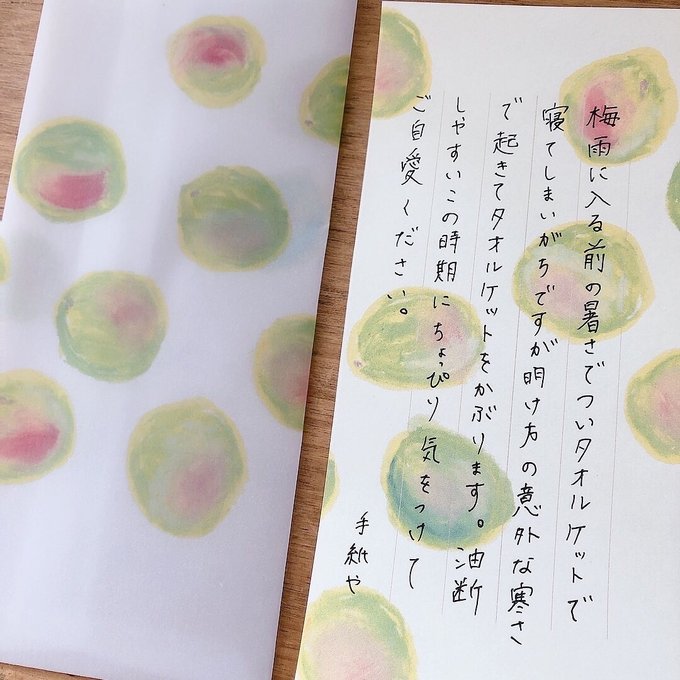 梅雨に入る前の暑さでついタオルケットで
寝てしまいがちですが明け方の意外な寒さ
で起きてタオルケットをかぶります。油断
しやすいこの時期にちょっぴり気をつけて
ご自愛ください。
手紙や